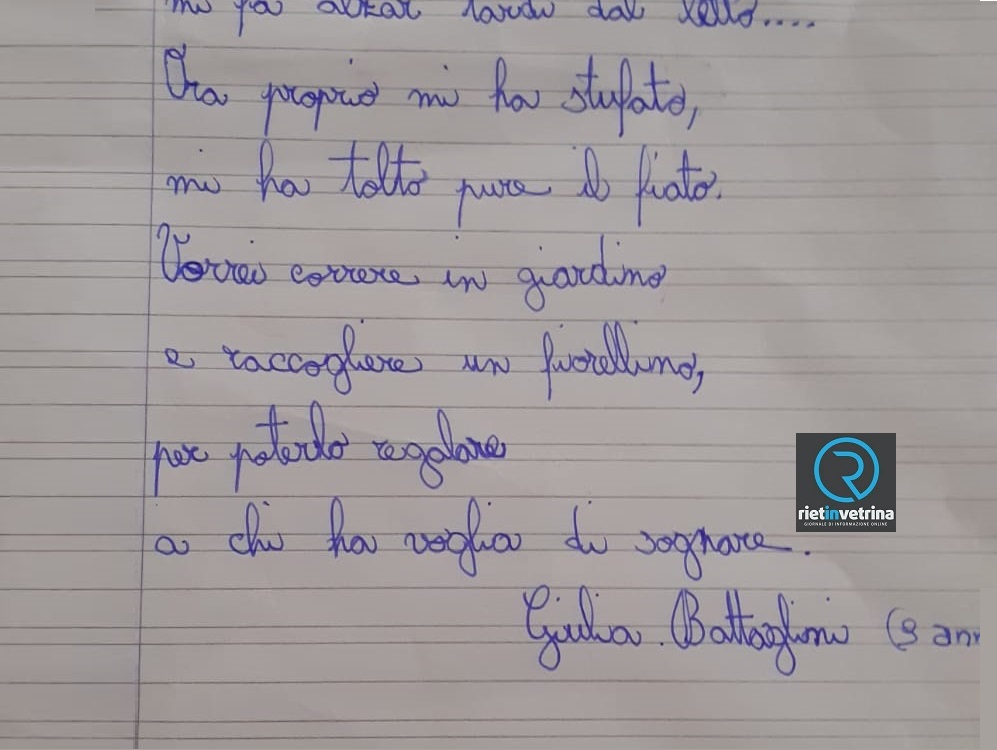 mi fa alzar tardi dal letto....
Ora proprio mi ha stufato,
mi ha tolto pure il fiato.
Vorrei correre in giardino
e raccogliere un fiorellino,
per poterlo regalare
a chi ha voglia di sognare.
Giulia Battaglini (9 ann
rietinvetrina
GIORNALE DI INFORMAZIONE ONLINE